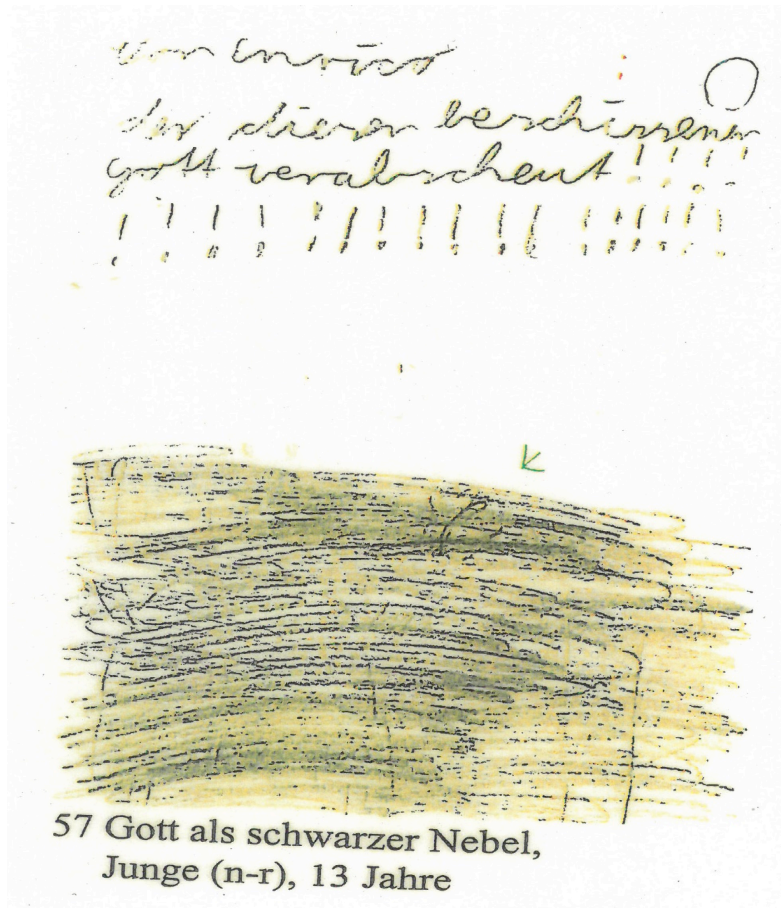 von Enrico
der diesen beschissenen
gott verabscheut!!!!
!!!!!!!!!!!!!!!!!!
57 Gott als schwarzer Nebel,
Junge (n-r), 13 Jahre